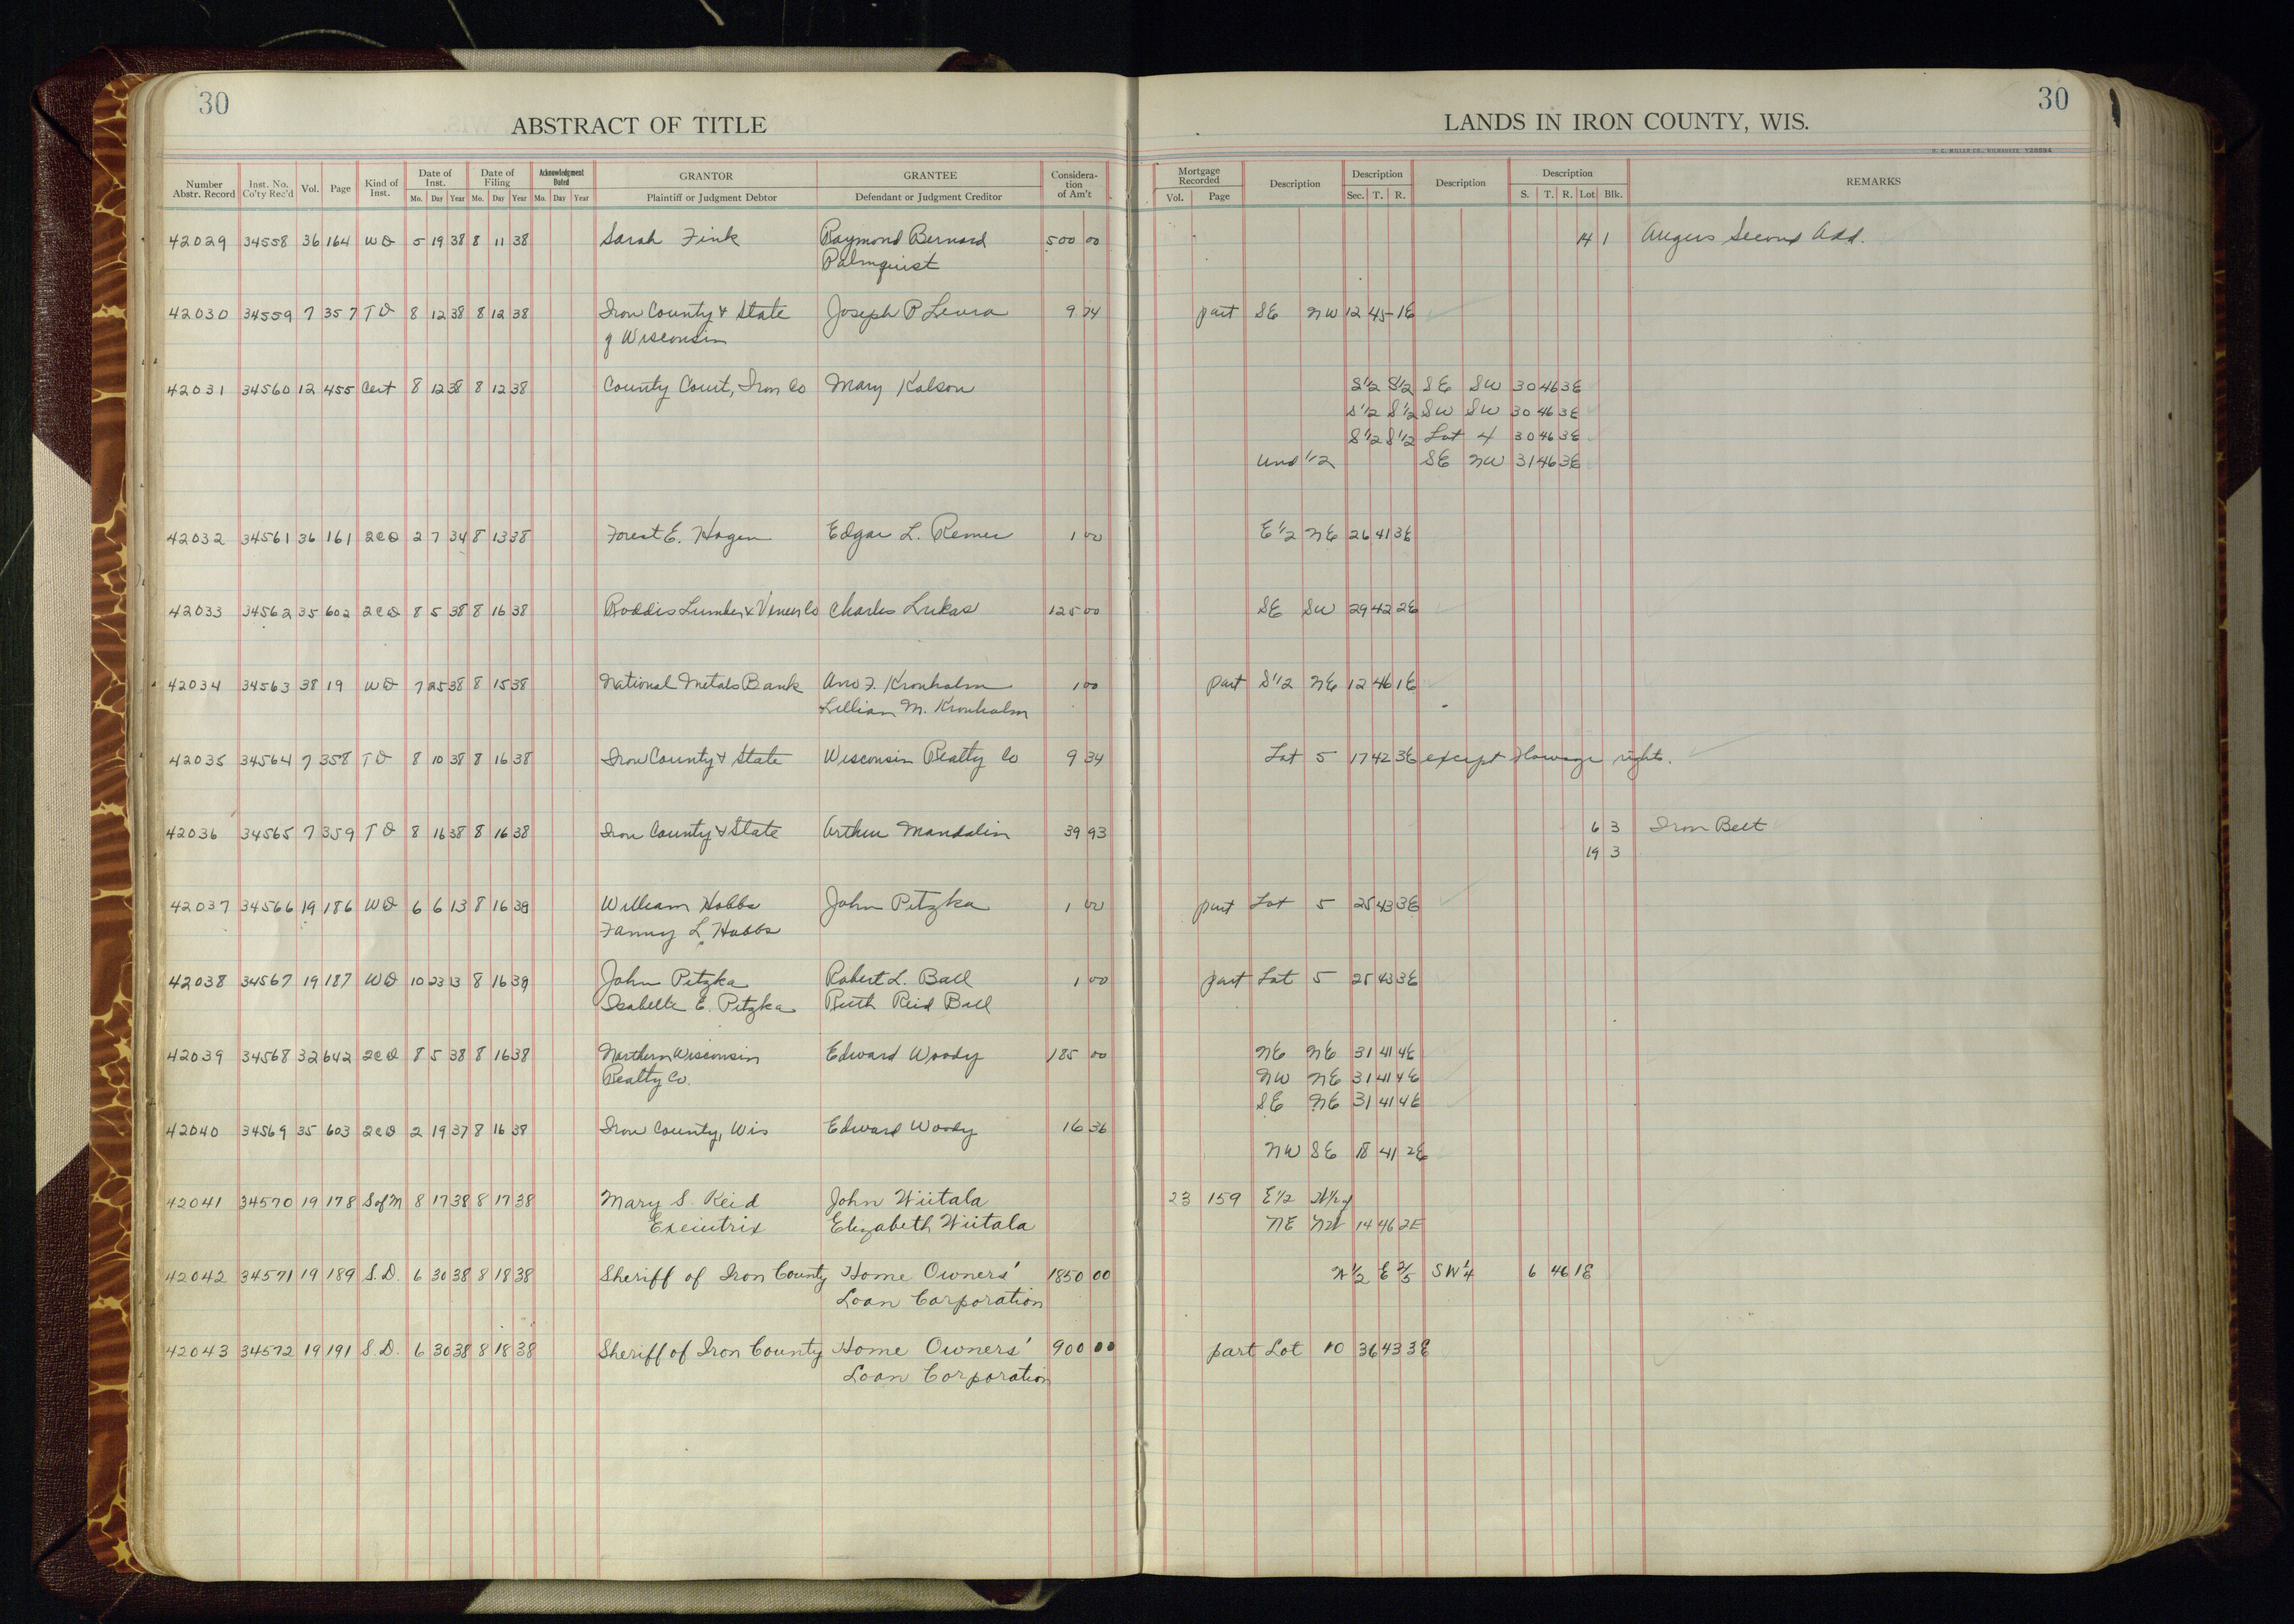 30
ABSTRACT OF TITLE
LANDS IN IRON COUNTY, WIS.
30
Number Abstr. Record Inst. No. Co'ty Rec'd Vol. Page Kind of Inst. Date of Inst. Mo. Day Year Date of Filing Mo. Day Year Acknowledgment Dated Mo. Day Year GRANTOR Plaintiff or Judgment Debtor GRANTEE Defendant or Judgment Creditor Consideration of Am't Mortgage Recorded Vol. Page Description Description Sec. T. R. Description Description S. T. R. Lot Blk. REMARKS
42029 34558 36 164 WD 5 19 38 8 11 38 Sarah Fink Raymond Bernard 500 00 14 1 Angus Second Add.
Palmquist
42030 34559 7 357 TD 8 12 38 8 12 38 Iron County & State Joseph P Leura 9 74 part SE NW 12 45 1E
of Wisconsin
42031 34560 12 455 Cert 8 12 38 8 12 38 County Court, Iron Co Mary Kolson S1/2 S1/2 SE SW 30 46 3E
S1/2 S1/2 SW SW 30 46 3E
S1/2 S1/2 Lot 4 30 46 3E
Und 1/2 SE NW 31 46 3E
42032 34561 36 161 2CD 2 7 34 8 13 38 Forest E. Hagen Edgar L. Remer 1 00 E1/2 NE 26 41 3E
42033 34562 35 602 2CD 8 5 38 8 16 38 Roddis Lumber & Veneer Co Charles Lukas 125 00 SE SW 29 42 2E
42034 34563 38 19 WD 7 25 38 8 15 38 National Metals Bank Arvo F. Kronholm 1 00 part S1/2 NE 12 46 1E
Lillian M. Kronholm
42035 34564 7 358 TD 8 10 38 8 16 38 Iron County & State Wisconsin Realty Co 9 34 Lot 5 17 42 3E except Flowage rights.
42036 34565 7 359 TD 8 16 38 8 16 38 Iron County & State Arthur Mandolin 39 93 6 3 Iron Belt
19 3
42037 34566 19 186 WD 6 6 13 8 16 38 William Hobbs John Pitzka 1 00 part Lot 5 25 43 3E
Fanny L. Hobbs
42038 34567 19 187 WD 10 23 13 8 16 38 John Pitzka Robert L. Ball 1 00 part Lot 5 25 43 3E
Isabelle E. Pitzka Ruth Reid Ball
42039 34568 32 642 2CD 8 5 38 8 16 38 Northern Wisconsin Edward Woody 185 00 NE NE 31 41 4E
Realty Co. NW NE 31 41 4E
SE NE 31 41 4E
42040 34569 35 603 2CD 2 19 37 8 16 38 Iron County, Wis Edward Woody 16 36
NW SE 18 41 2E
42041 34570 19 178 S of M 8 17 38 8 17 38 Mary S. Reid John Wiitala 23 159 E1/2 W1/2 of
Executrix Elizabeth Wiitala NE NW 14 46 2E
42042 34571 19 189 S.D. 6 30 38 8 18 38 Sheriff of Iron County Home Owners' 1850 00 N1/2 E 2/5 SW1/4 6 46 1E
Loan Corporation
42043 34572 19 191 S.D. 6 30 38 8 18 38 Sheriff of Iron County Home Owners' 900 00 part Lot 10 36 43 3E
Loan Corporation